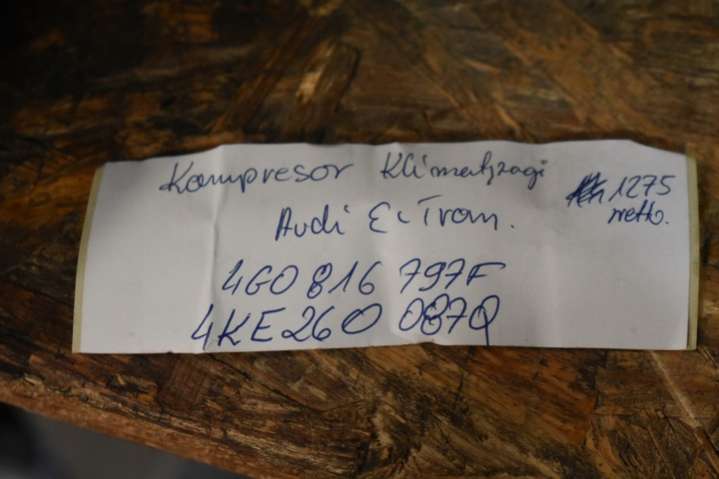 Kompresor Klimatyzagi
1275
netto.
Audi E-Tron.
4G0 816 797F
4KE260 087Q